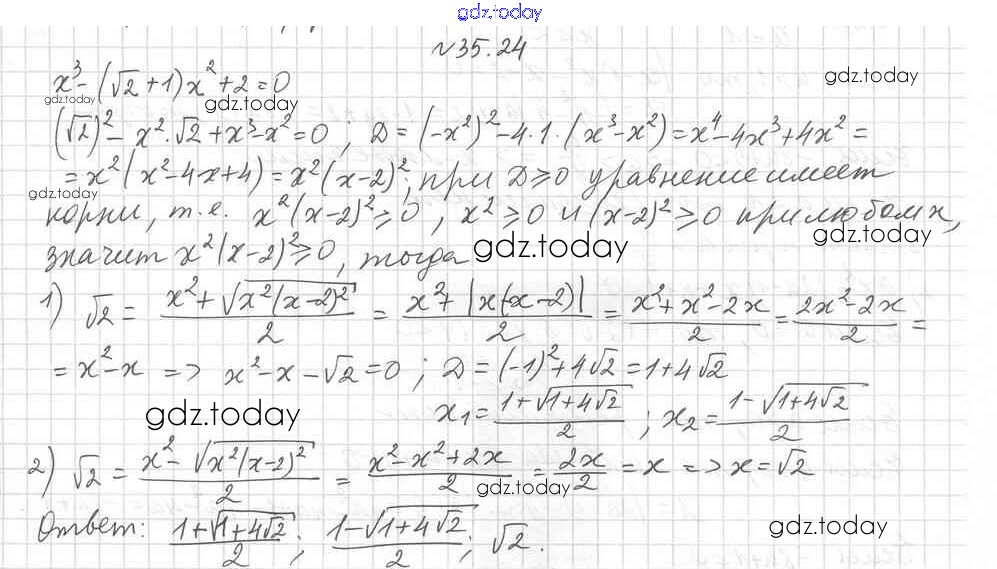 gdz.today
№35.24
x³-(√2+1)x²+2=0
gdz.today
gdz.today
gdz.today
(√2)²-x²·√2+x³-x²=0; D=(-x²)²-4·1·(x³-x²)=x⁴-4x³+4x²=
=x²(x²-4x+4)=x²(x-2)²; при D≥0 уравнение имеет
gdz.today
корни, т.е. x²(x-2)²≥0, x²≥0 и (x-2)²≥0 при любом x,
gdz.today
значит x²(x-2)²≥0, тогда
gdz.today
1) √2=(x²+√(x²(x-2)²))/2=(x²+|x(x-2)|)/2=(x²+x²-2x)/2=(2x²-2x)/2=
=x²-x => x²-x-√2=0; D=(-1)²+4√2=1+4√2
gdz.today
x₁=(1+√(1+4√2))/2; x₂=(1-√(1+4√2))/2
2) √2=(x²-√(x²(x-2)²))/2=(x²-x²+2x)/2=2x/2=x => x=√2
gdz.today
Ответ: (1+√(1+4√2))/2; (1-√(1+4√2))/2; √2.
gdz.today